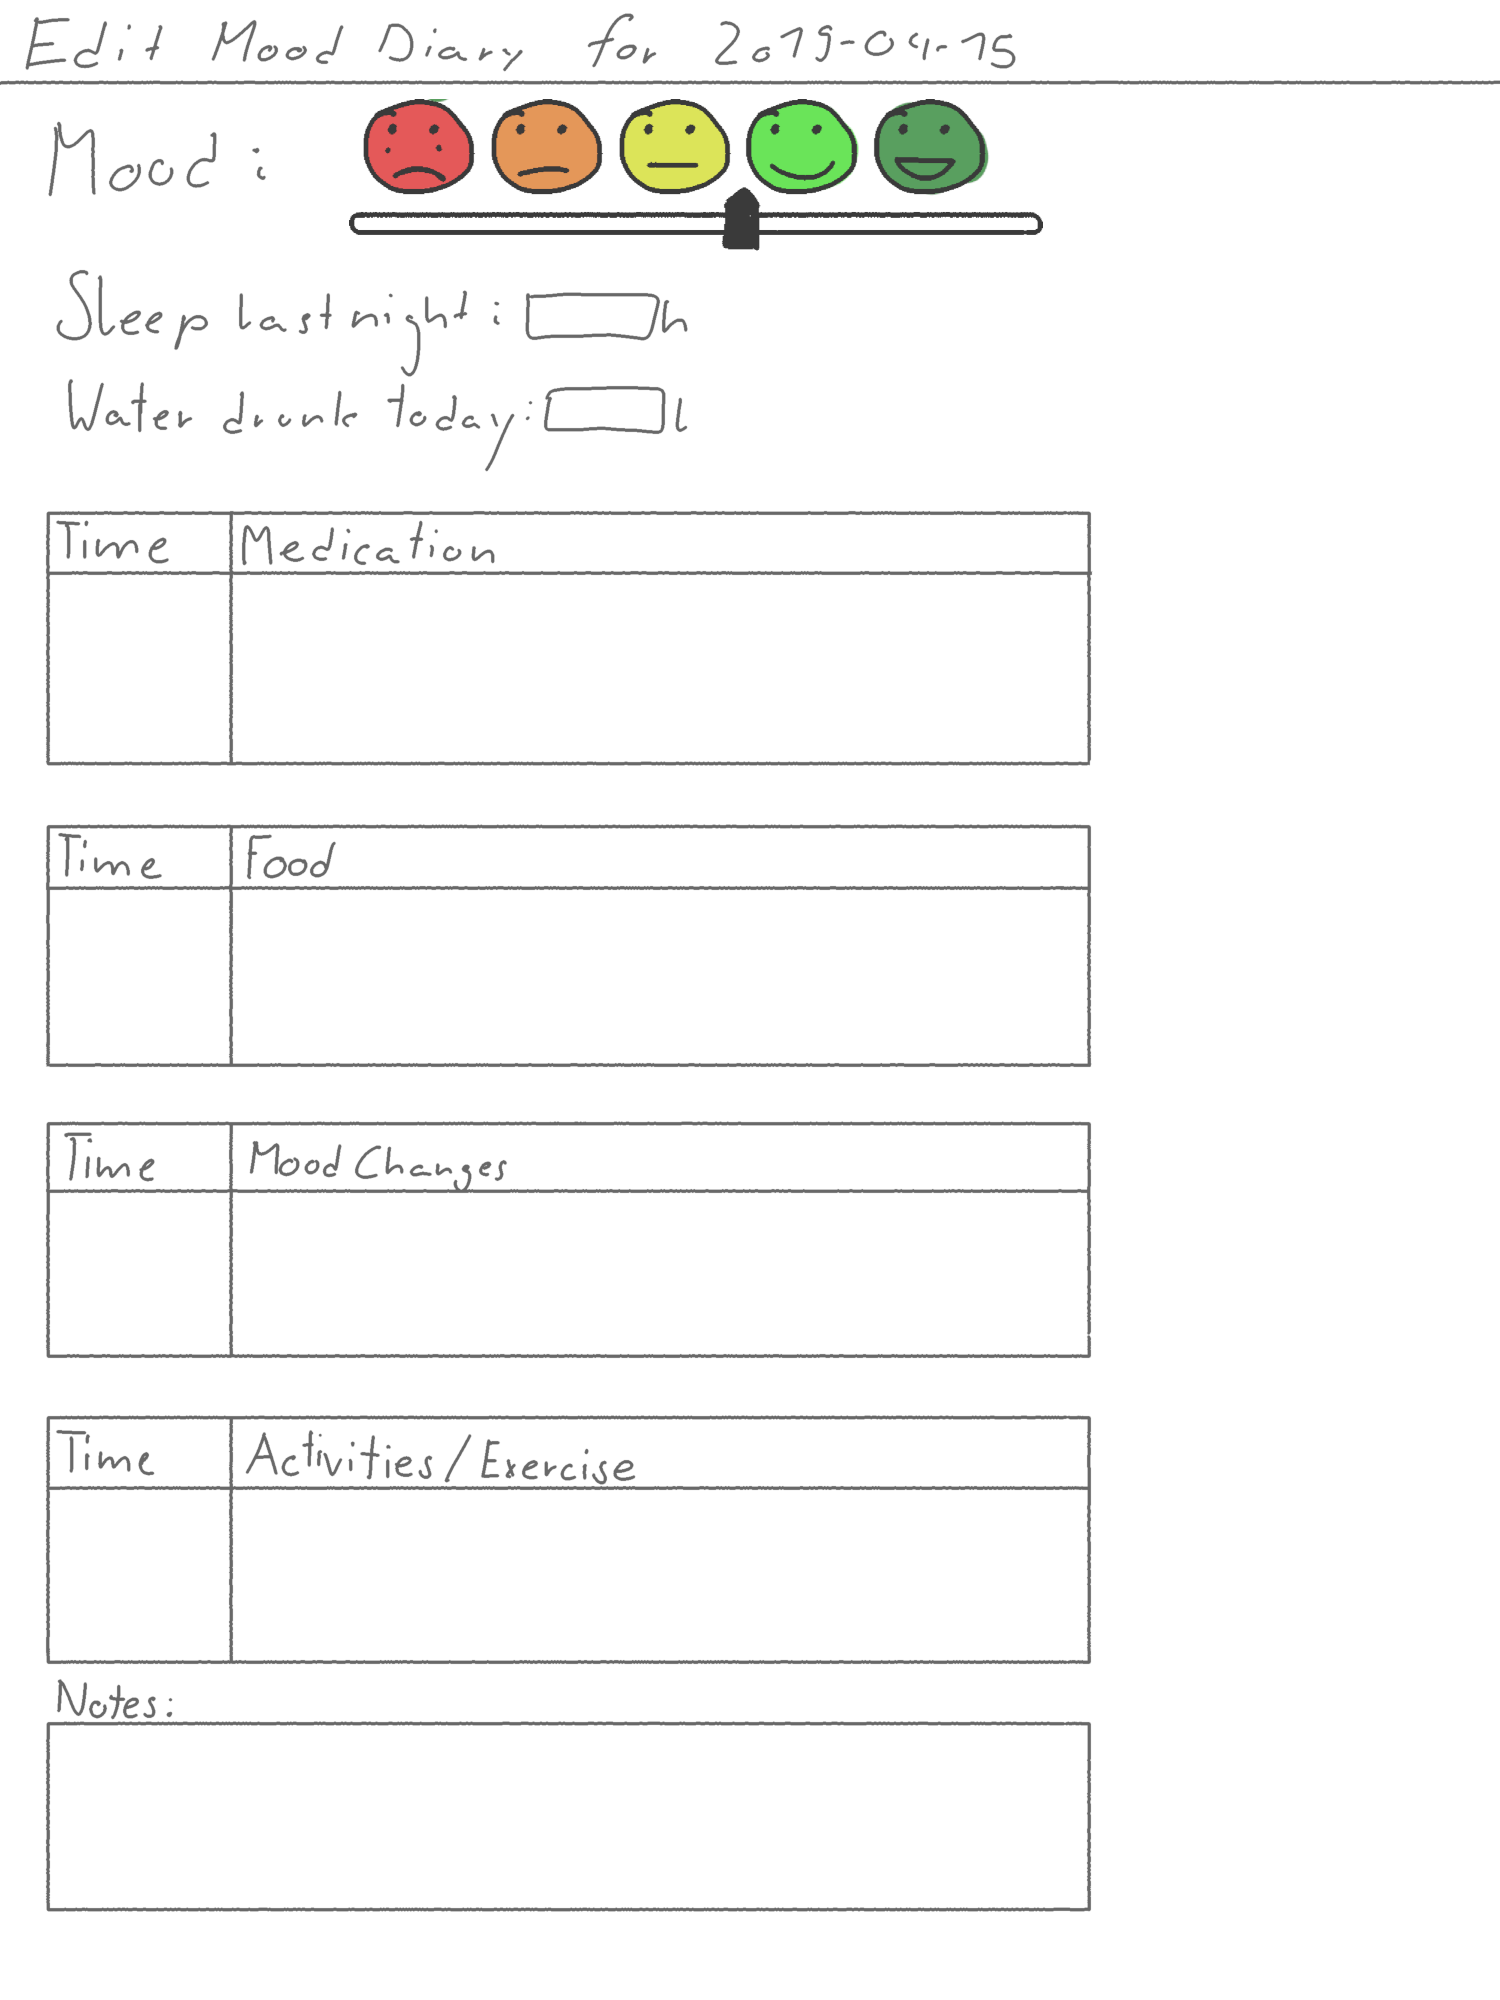 Edit Mood Diary for 2019-04-15
Mood:
Sleep last night: h
Water drunk today: l
Time Medication
Time Food
Time Mood Changes
Time Activities/Exercise
Notes: